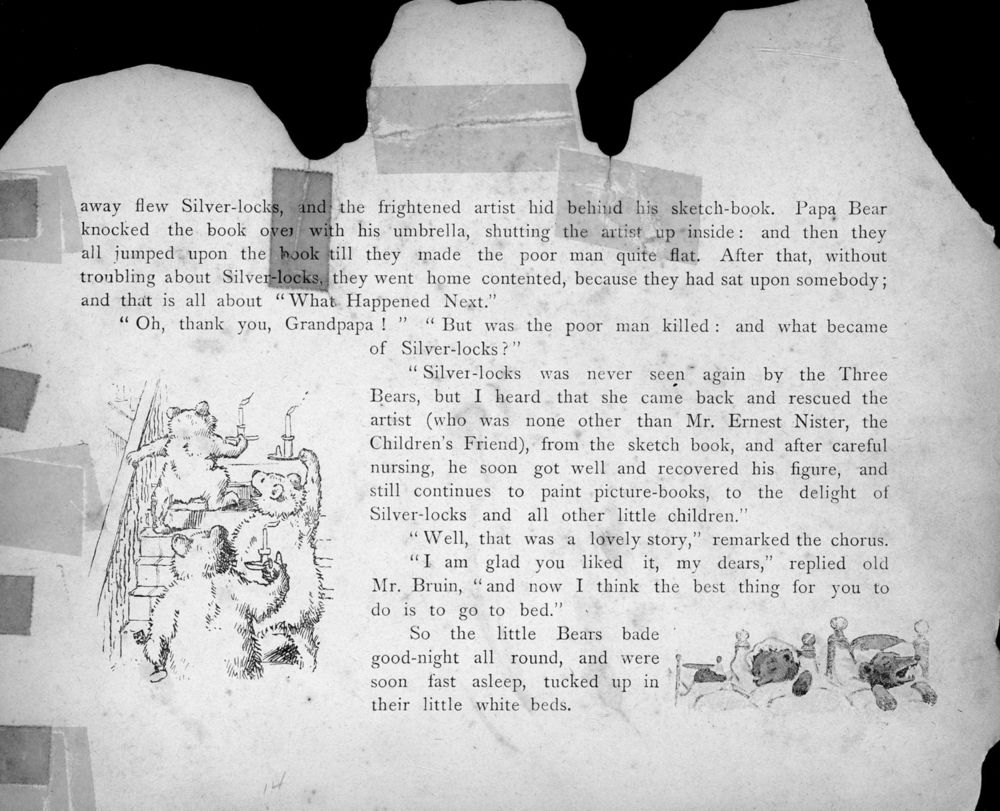 away flew Silver-locks, and the frightened artist hid behind his sketch-book. Papa Bear
knocked the book over with his umbrella, shutting the artist up inside: and then they
all jumped upon the book till they made the poor man quite flat. After that, without
troubling about Silver-locks, they went home contented, because they had sat upon somebody;
and that is all about "What Happened Next."
"Oh, thank you, Grandpapa!" "But was the poor man killed: and what became
of Silver-locks?"
"Silver-locks was never seen again by the Three
Bears, but I heard that she came back and rescued the
artist (who was none other than Mr. Ernest Nister, the
Children's Friend), from the sketch book, and after careful
nursing, he soon got well and recovered his figure, and
still continues to paint picture-books, to the delight of
Silver-locks and all other little children."
"Well, that was a lovely story," remarked the chorus.
"I am glad you liked it, my dears," replied old
Mr. Bruin, "and now I think the best thing for you to
do is to go to bed."
So the little Bears bade
good-night all round, and were
soon fast asleep, tucked up in
their little white beds.
14